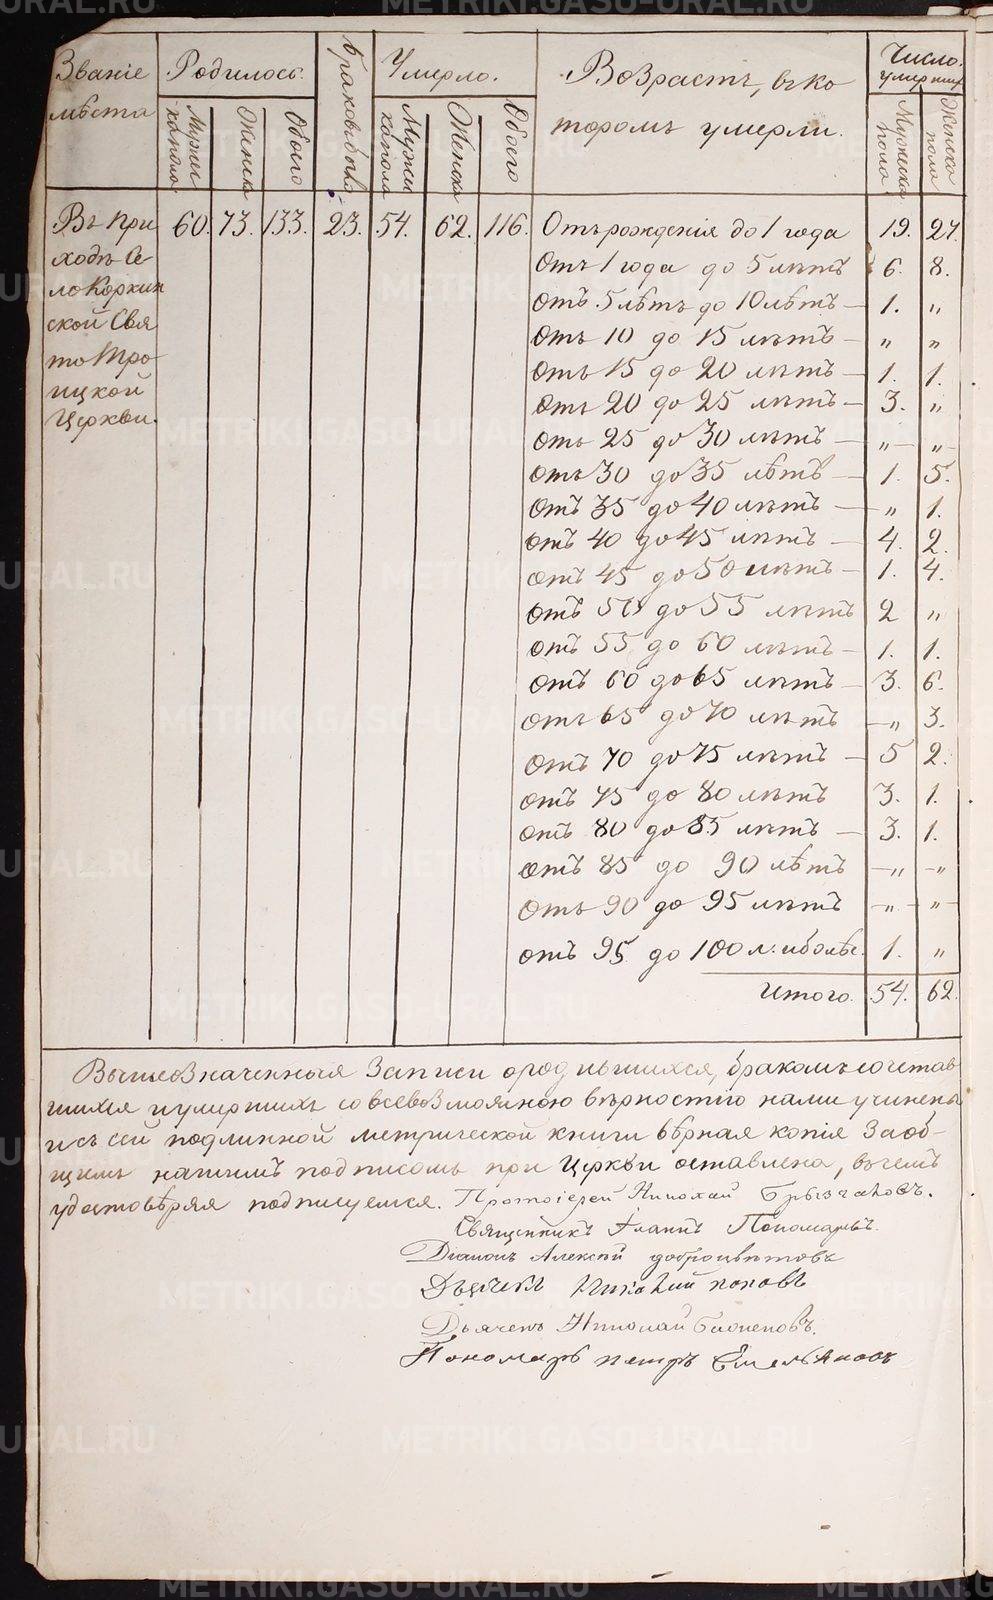 Званіе мѣста
Родилось.
Мужескаполо
Женска
Обоего
Браковъ было
Умерло.
Мужескаполо
Женска
Обоего
Возрастъ, въ ко
торомъ умерли.
Число умершихъ
Мужеска пола
Женска пола
Въ при 60. 73. 133. 23. 54. 62. 116. Отъ рожденія до 1 года 19. 27.
ходѣ Се Отъ 1 года до 5 лѣтъ 6. 8.
ла Коркин Отъ 5 лѣтъ до 10 лѣтъ — 1. "
ской Свя Отъ 10 до 15 лѣтъ — " "
то Тро Отъ 15 до 20 лѣтъ — 1. 1.
ицкой Отъ 20 до 25 лѣтъ — 3. "
Церкви. Отъ 25 до 30 лѣтъ — " "
Отъ 30 до 35 лѣтъ — 1. 5.
Отъ 35 до 40 лѣтъ — " 1.
Отъ 40 до 45 лѣтъ — 4. 2.
отъ 45 до 50 лѣтъ — 1. 4.
отъ 50 до 55 лѣтъ 2 "
отъ 55 до 60 лѣтъ — 1. 1.
отъ 60 до 65 лѣтъ — 3. 6.
отъ 65 до 70 лѣтъ — " 3.
отъ 70 до 75 лѣтъ — 5 2.
отъ 75 до 80 лѣтъ 3. 1.
отъ 80 до 85 лѣтъ — 3. 1.
отъ 85 до 90 лѣтъ — " — "
отъ 90 до 95 лѣтъ — " — " —
отъ 95 до 100 л. и болѣе. 1. "
Итого. 54. 62.
Вышеозначенныя Записи о родившихся, бракомъ сочетав
шихся и умершихъ со всевозможною вѣрностію нами учинены
и съ сей подлинной метрической книги вѣрная копія За об-
щимъ нашимъ подписомъ при Церкви оставлена, въ чемъ
удостовѣряя подписуемся. Протоіерей Николай
Священникъ Іоаннъ Пономаревъ.
Діаконъ Алексѣй доброцвѣтовъ
Дьячекъ Николай поповъ
Дьячекъ Николай
Пономарь петръ Емельяновъ
METRIKI.GASO-URAL.RU